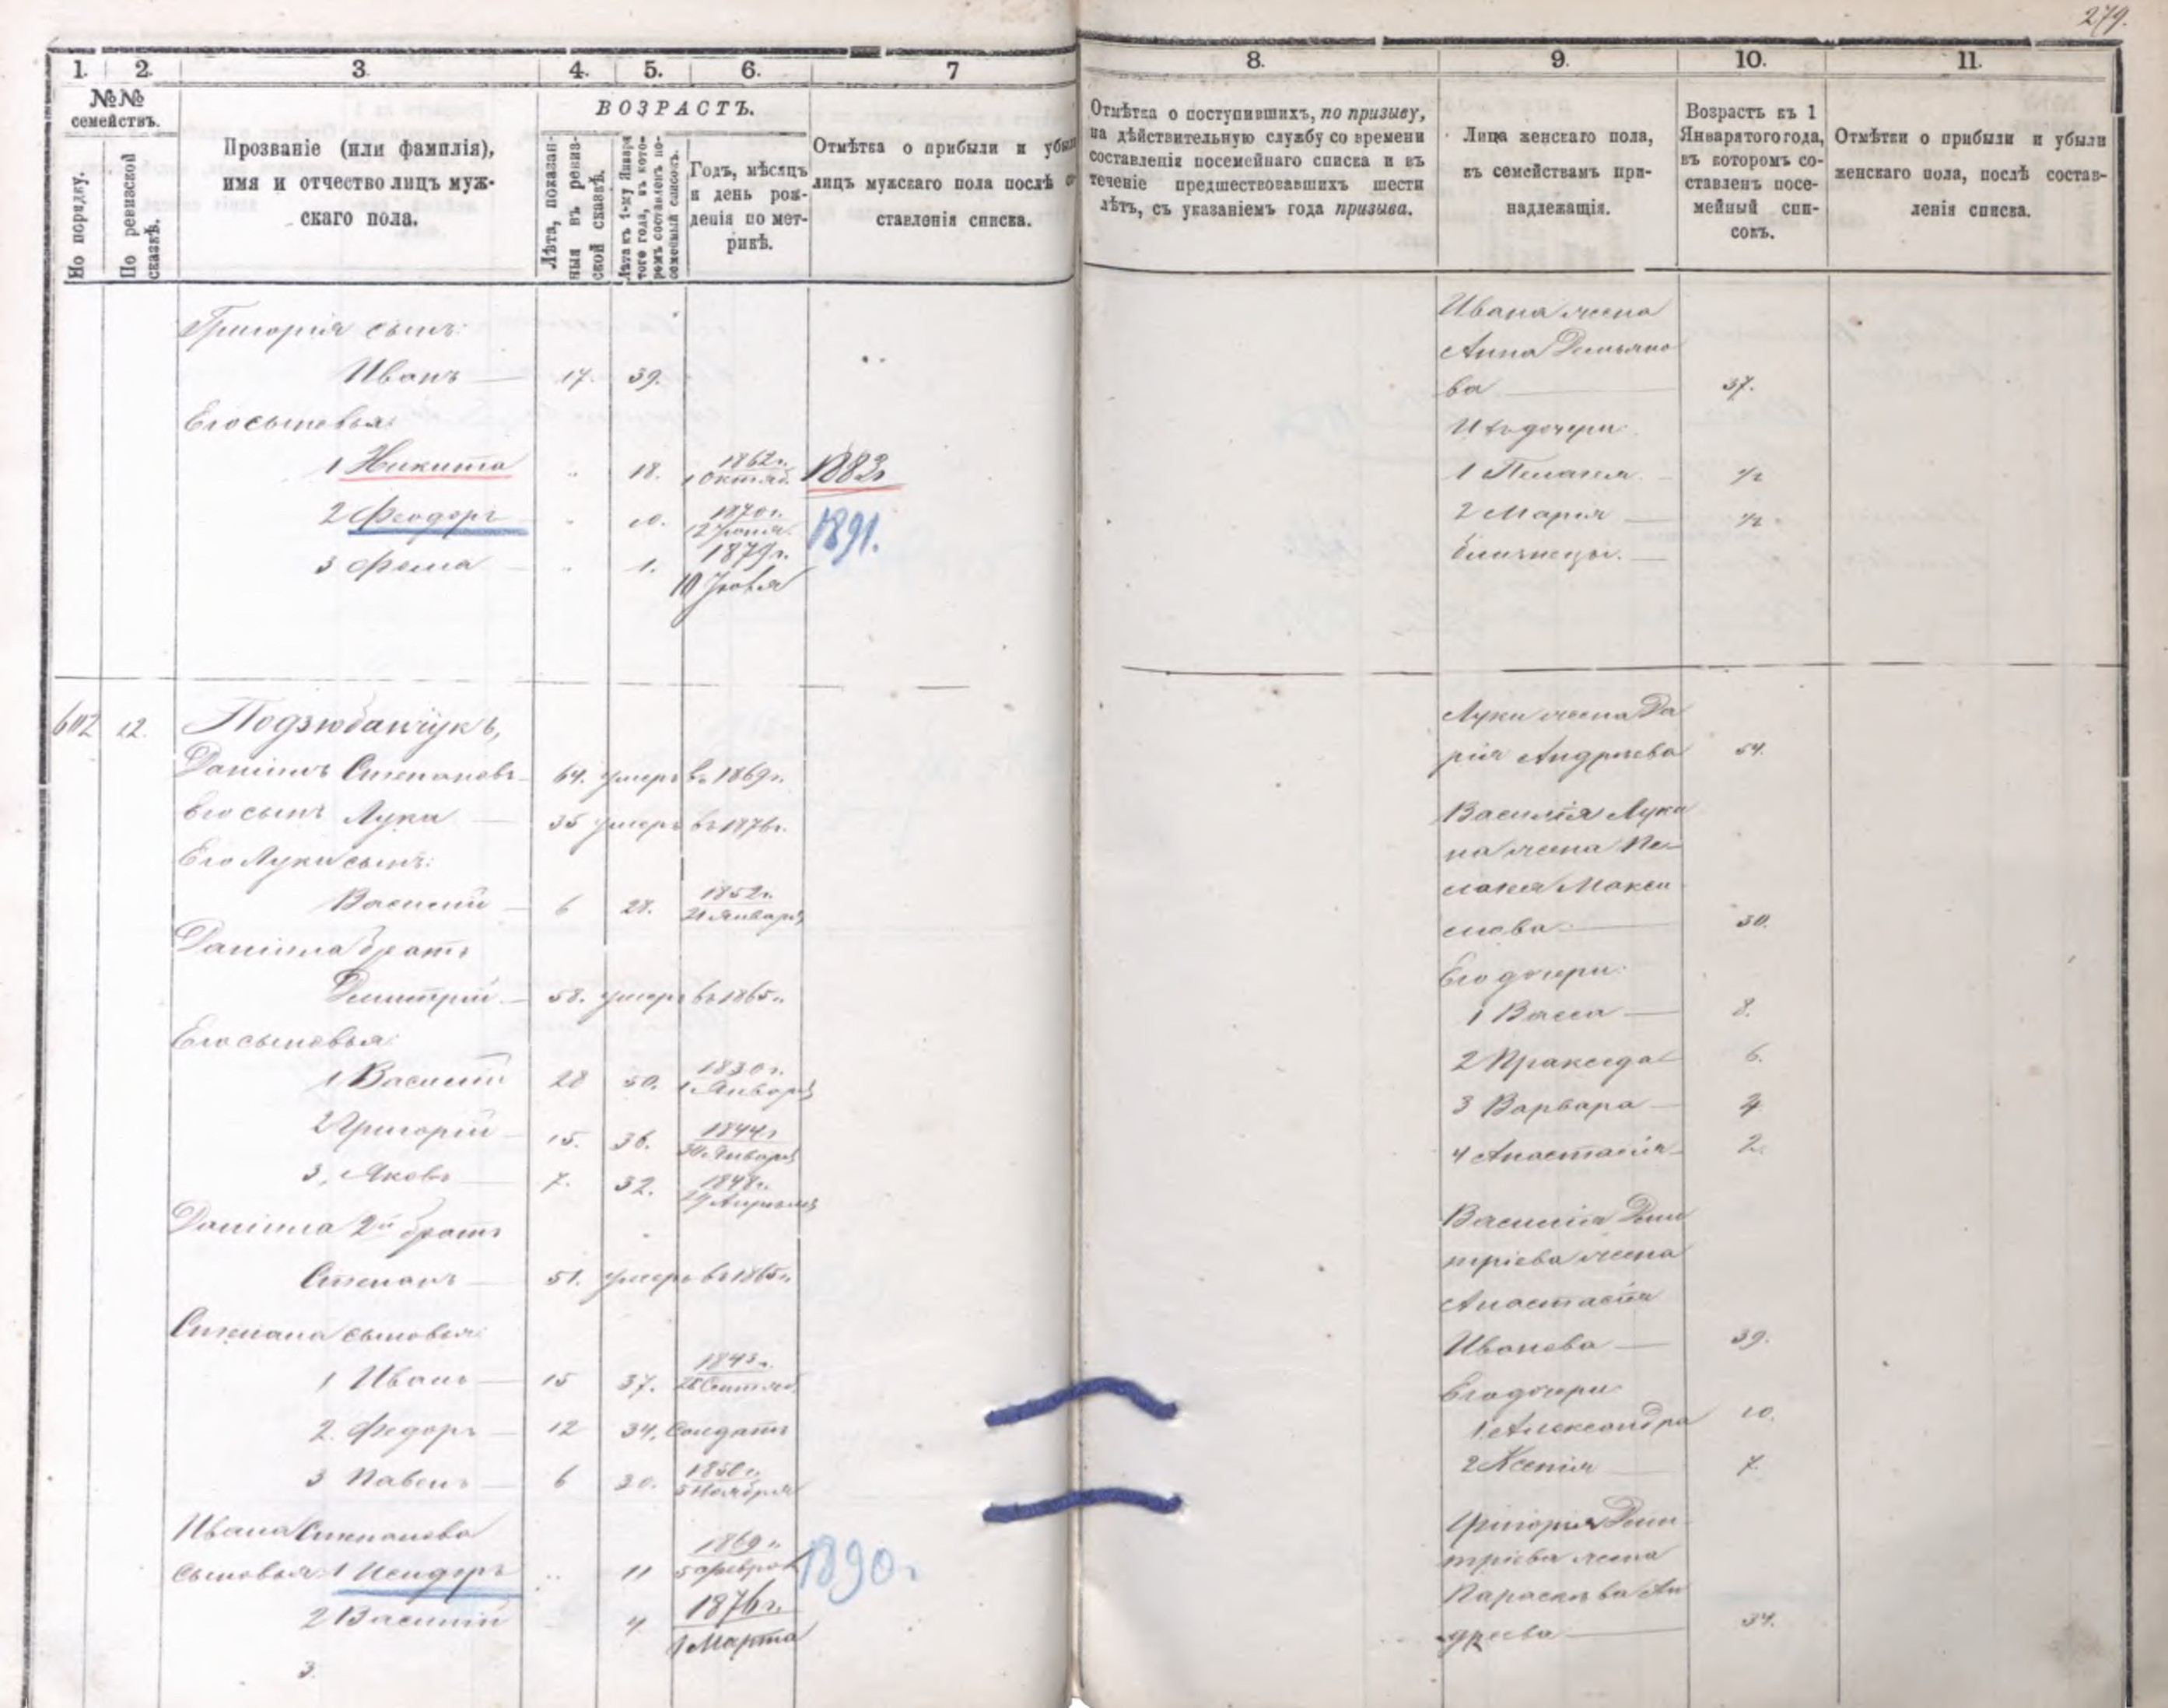 279.
1.
2.
3.
4.
5.
6.
7
8.
9.
10.
11.
№№
семействъ.
По порядку.
По ревизской
сказкѣ.
Прозваніе (или фамилія),
имя и отчество лицъ муж-
скаго пола.
ВОЗРАСТЪ.
Лѣта, показан-
ныя въ ревиз-
ской сказкѣ.
Лѣта къ 1-му Января
того года, въ кото-
ромъ составленъ по-
семейный списокъ.
Годъ, мѣсяцъ
и день рож-
денія по мет-
рикѣ.
Отмѣтка о прибыли и убыли
лицъ мужскаго пола послѣ со-
ставленія списка.
Отмѣтка о поступившихъ, по призыву,
на дѣйствительную службу со времени
составленія посемейнаго списка и въ
теченіе предшествовавшихъ шести
лѣтъ, съ указаніемъ года призыва.
Лица женскаго пола,
къ семействамъ при-
надлежащія.
Возрастъ къ 1
Января того года,
въ которомъ со-
ставленъ посе-
мейный спи-
сокъ.
Отмѣтки о прибыли и убыли
женскаго пола, послѣ состав-
ленія списка.
Григорія сынъ:
Иванъ 17. 39.
Его сыновья:
1 Никита 18. 1862г. 1 Октяб. 1883г
2 Феодоръ 10. 1870г. 12 Іюня 1891.
3 Фома 1. 1879г.
602 22. Подзюбанчукъ,
Даніилъ Степановъ 64. умеръ въ 1869г.
Его сынъ Лука 35 умеръ въ 1876г.
Его Луки сынъ:
Василій 6 28. 1852г. 21 Января
Даніила братъ
Димитрій 58. умеръ въ 1865г.
Его сыновья:
1 Василій 28 50. 1830г. 1 Января
2 Григорій 15. 36. 1844г 30 Января
3. Яковъ 7. 32. 1848г. 29 Апрѣля
Даніила 2й братъ
Степанъ 51. умеръ въ 1865г.
Степана сыновья:
1 Иванъ 15 37. 1843г. 28 Сентяб.
2. Федоръ 12 34. Солдатъ
3 Павелъ 6 30. 1850г. 5 Ноября
Ивана Степанова
сыновья: 1 Исидоръ 11 1869г. 5 Феврал 1890г
2 Василій 4 1876г. 1 Марта
3.
Ивана жена
Анна Демьяно
ва 37.
Ихъ дочери:
1 Пелагея ½
2 Марія ½
близнецы.
Луки жена Да
рія Андреева 54.
Василія Луки
на жена Пе-
лагея Макси
мова 30.
Его дочери:
1 Васса 8.
2 Параскеда 6.
3 Варвара 4
4 Анастасія 2.
Василія Дми
тріева жена
Анастасія
Иванова 39.
Его дочери
1. Александра 10.
2 Ксенія 7.
Григорія Дми-
тріева жена
Параскева Ан
дреева 34.